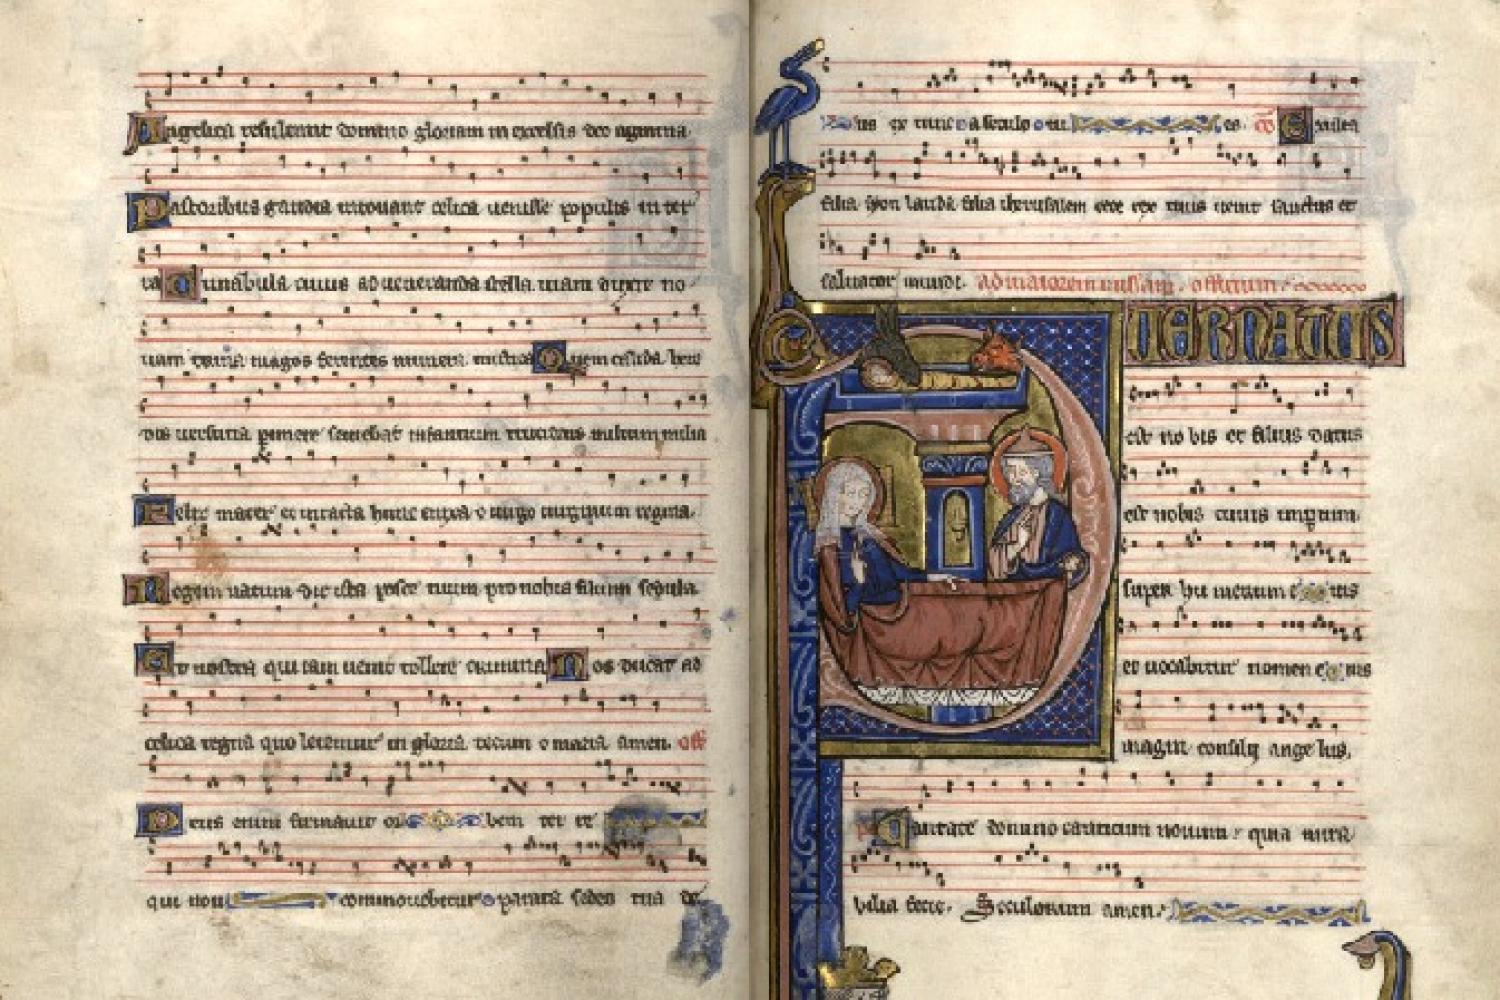 Angelica resultent domino gloriam in excelsis deo agmina
Pastoribus gaudia intonant celica uenisse populis in ter
ra Cunabula cuius adueneranda stella uiam duxit no
uam magos ferentes munera mistica Quem
uersuta perimere infantium trucidans multum milia
Felix mater et intacta hunc enixa o uirgo uirginum regina
Regem natum die ista posce tuum pro nobis filium sedula
Ut nostra qui iam uenit tollere crimina Nos ducat ad
celica regna quo letemur in gloria tecum o maria amen. off
Deus enim firmauit or bem ter re
qui non commouebitur parata sedes tua de
us ex tunc a seculo tu es. co Exulta
filia syon lauda filia iherusalem ecce rex tuus uenit sanctus et
saluator mundi. ad maiorem missam. officium
P UER NATUS
est no bis et filius datus
est nobis cuius imperium
super hu merum e ius
et uocabitur nomen e ius
magni consilij ange lus,
ps Cantate domino canticum nouum quia mira
bilia fecit. Seculorum amen.